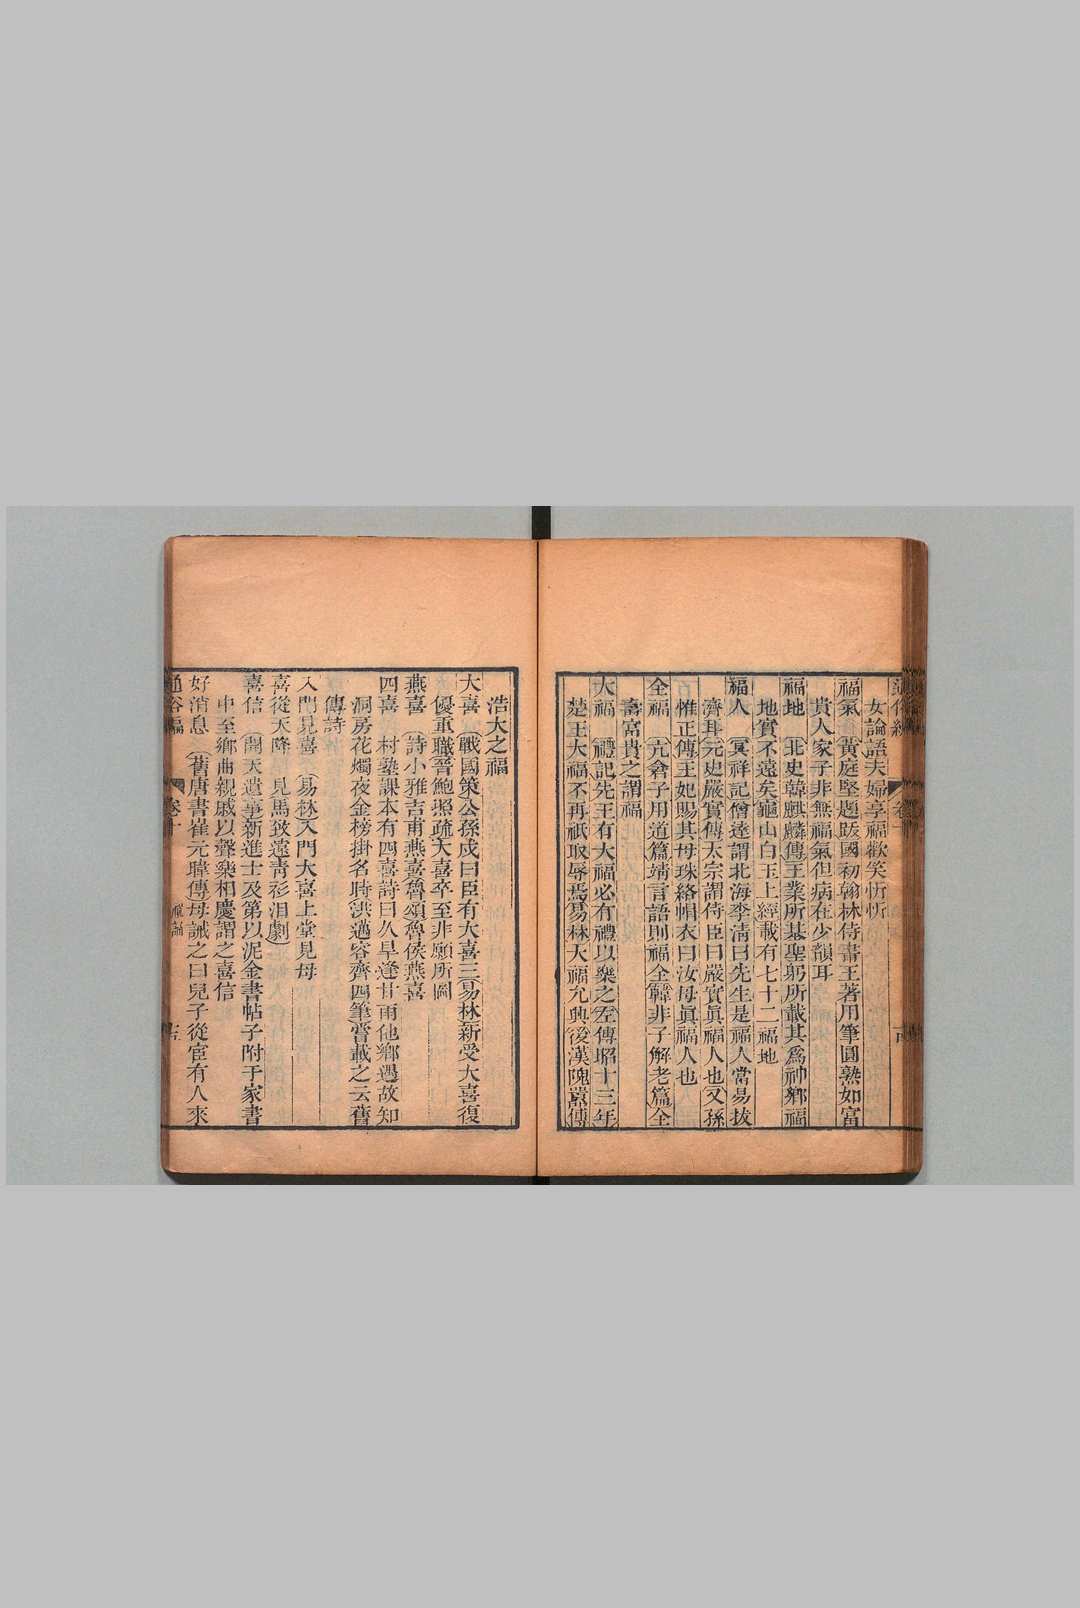 女論語夫婦享福歡笑忻忻
福氣 黃庭堅題跋國初翰林侍書王著用筆圓熟如富
貴人家子非無福氣但病在少韻耳
福地 北史韓麒麟傳王業所基聖躬所載其爲神鄉福
地實不遠矣龜山白玉上經載有七十二福地
福人 冥祥記僧達謂北海李清曰先生是福人當易拔
濟耳元史嚴實傳太宗謂侍臣曰嚴實眞福人也又孫
惟正傳王妃賜其母珠絡帽衣曰汝母眞福人也
全福 亢倉子用道篇靖言語則福全韓非子解老篇全
壽富貴之謂福
大福 禮記先王有大福必有禮以樂之左傳昭十三年
楚王大福不再祇取辱焉易林大福允典後漢隗囂傳
浩大之福
大喜 戰國策公孫戍曰臣有大喜三易林新受大喜復
優重職晉鮑照疏大喜卒至非願所圖
燕喜 詩小雅吉甫燕喜魯頌魯侯燕喜
四喜 村塾課本有四喜詩曰久旱逢甘雨他鄉遇故知
洞房花燭夜金榜掛名時洪邁容齊四筆嘗載之云舊
傳詩
入門見喜 易林入門大喜上堂見母
喜從天降 見馬致遠青衫泪劇
喜信 開天遺事新進士及第以泥金書帖子附于家書
中至鄉曲親戚以聲樂相慶謂之喜信
好消息 舊唐書崔元暐傳母誡之曰兒子從宦有人來
通俗編 卷十